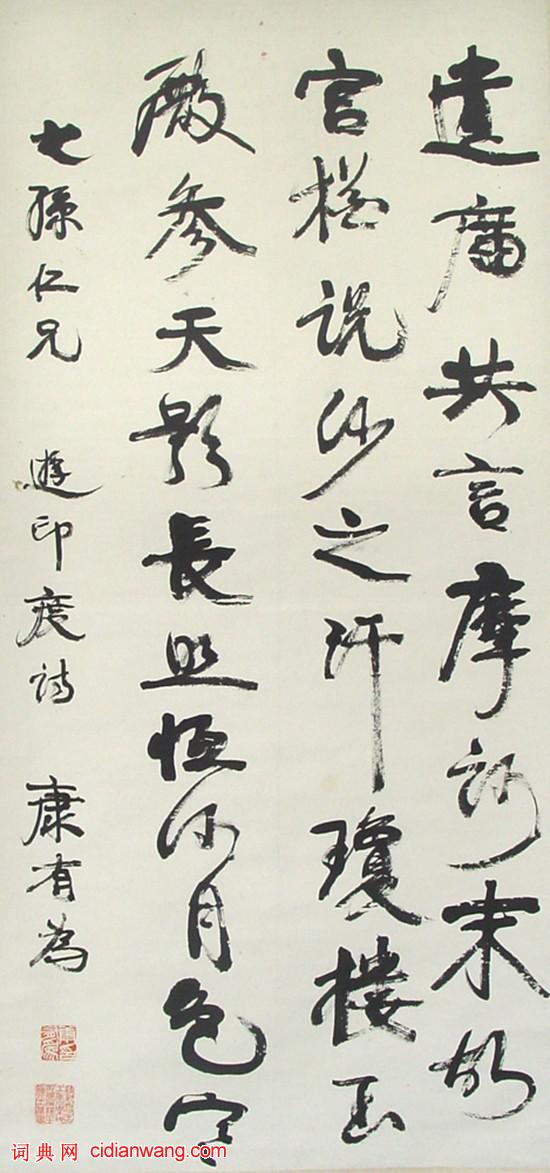 遺廟共言摩訶末故
宮猶説沙之汗瓊樓玉
殿參天影長照恆河月色寒
七孫仁兄 遊印度詩 康有為
词典网 cidianwang.com